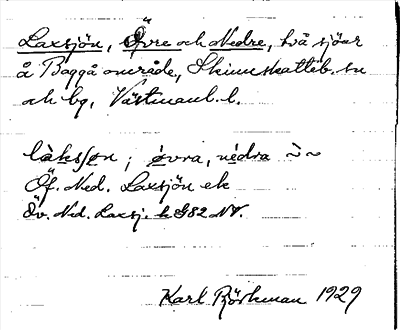 Laxsjön, Övre och Nedre, två sjöar
å Baggå område, Skinnskatteb. sn
och bg, Västmanl. l.
làksʃøn ; øvra, nedra ~ ~
Öf. Ned. Laxsjön ek
Öv. Ned. Laxsj. k G82 NV.
Karl Björkman 1929